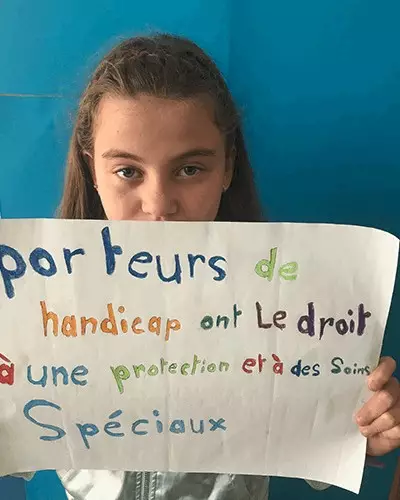 porteurs de
handicap ont Le droit
à une protection et à des Soins
Spéciaux